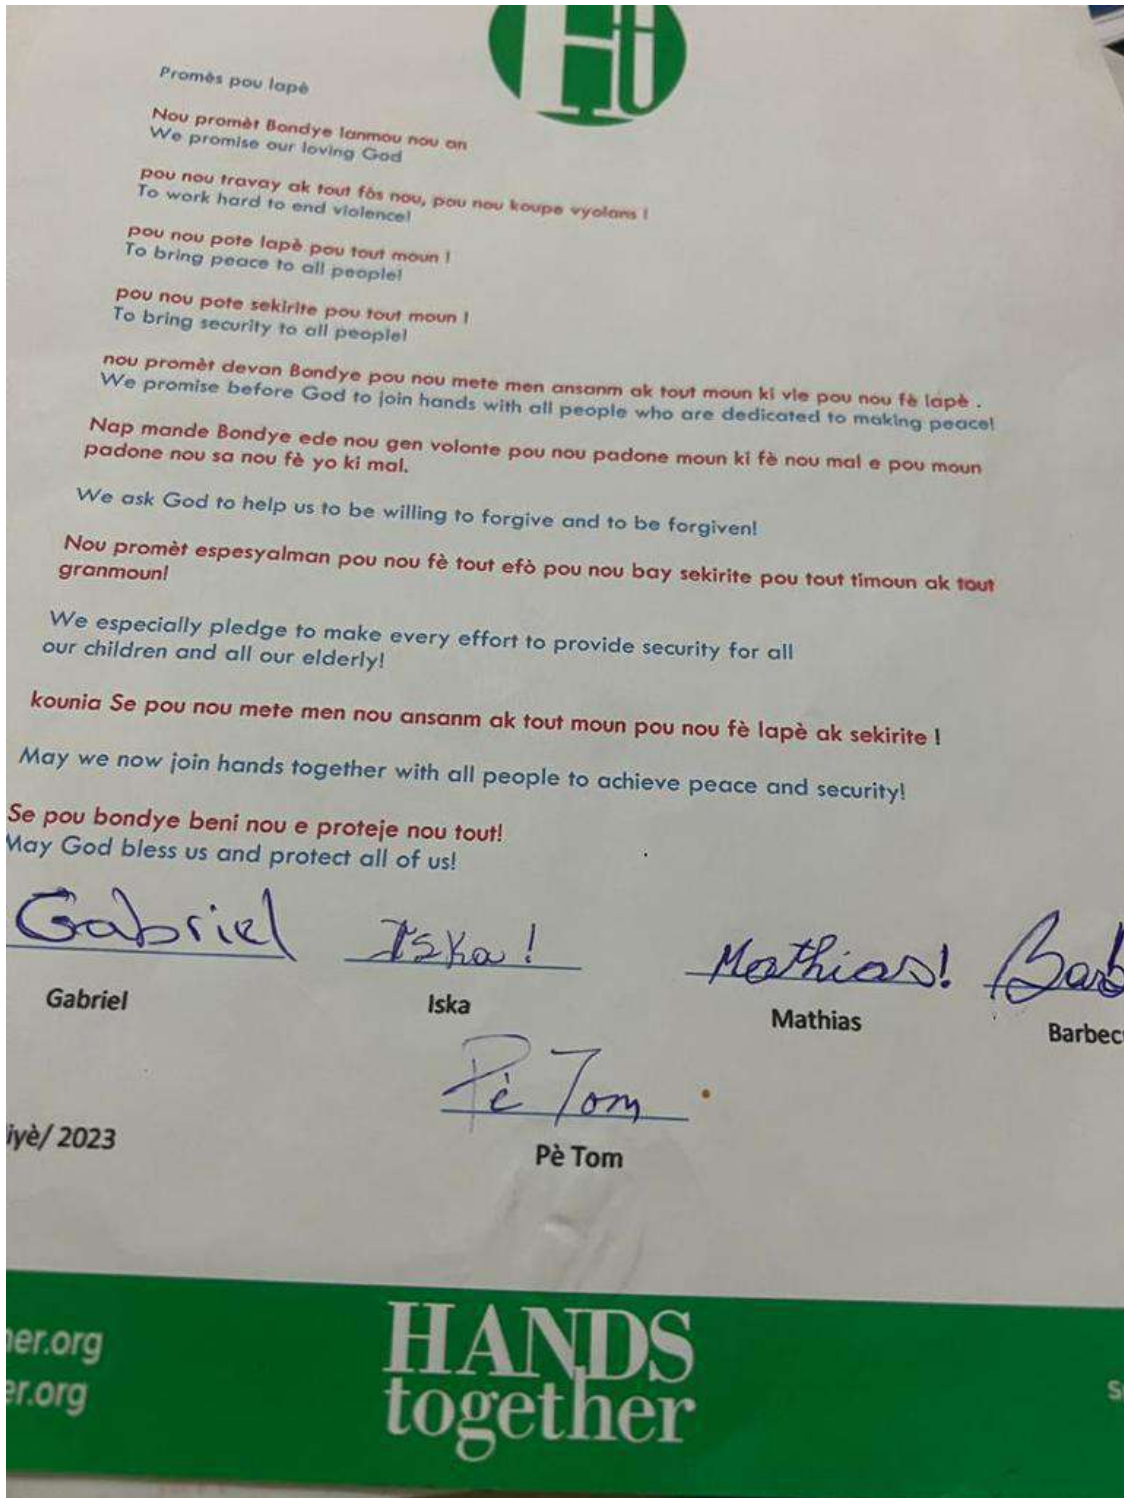 Promès pou lapè
Nou promèt Bondye lanmou nou an
We promise our loving God
pou nou travay ak tout fòs nou, pou nou koupe vyolans !
To work hard to end violence!
pou nou pote lapè pou tout moun !
To bring peace to all people!
pou nou pote sekirite pou tout moun !
To bring security to all people!
nou promèt devan Bondye pou nou mete men ansanm ak tout moun ki vle pou nou fè lapè .
We promise before God to join hands with all people who are dedicated to making peace!
Nap mande Bondye ede nou gen volonte pou nou padone moun ki fè nou mal e pou moun
padone nou sa nou fè yo ki mal.
We ask God to help us to be willing to forgive and to be forgiven!
Nou promèt espesyalman pou nou fè tout efò pou nou bay sekirite pou tout timoun ak tout
granmoun!
We especially pledge to make every effort to provide security for all
our children and all our elderly!
kounia Se pou nou mete men nou ansanm ak tout moun pou nou fè lapè ak sekirite !
May we now join hands together with all people to achieve peace and security!
Se pou bondye beni nou e proteje nou tout!
May God bless us and protect all of us!
Gabriel Iska! Mathias! Barb
Gabriel Iska Mathias Barbec
Pè Tom
iyè/ 2023 Pè Tom
er.org
er.org
HANDS
together